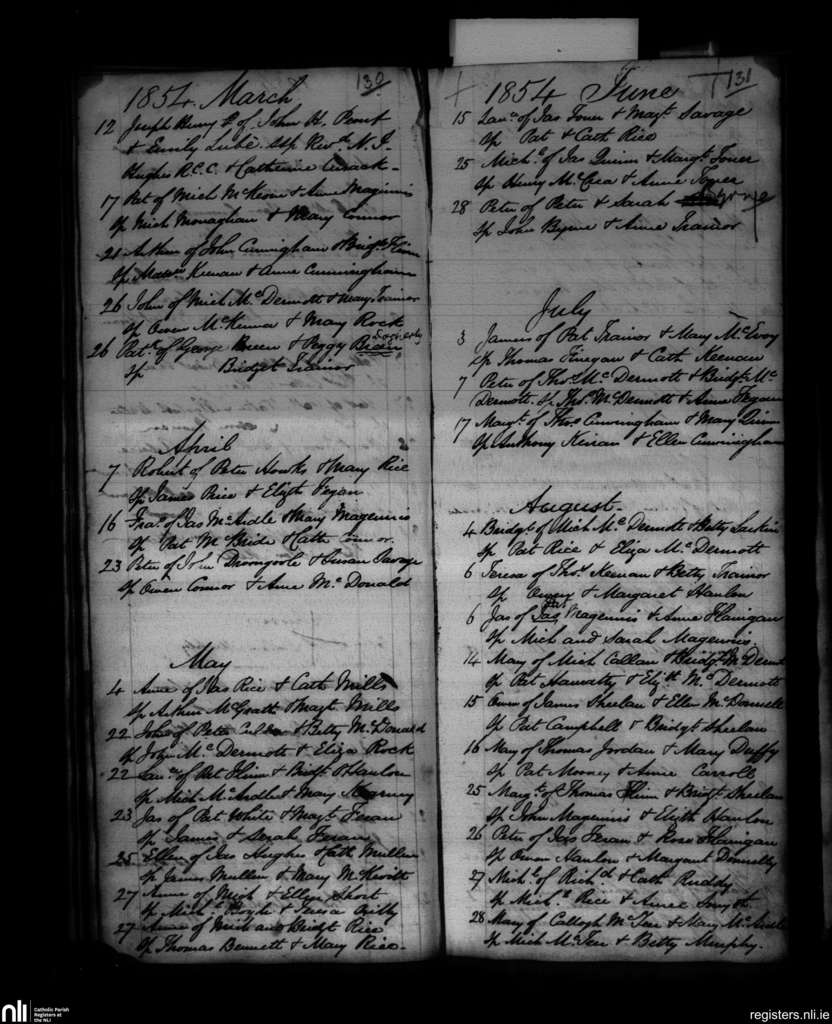 130
1854. March
12 Joseph Henry of John H.
& Emily Sp Revd. N. J.
Hughes R.C.C. & Catherine Cusack -
17 Pat of Mich McKeon & Anne Maginnis
Sp Mich Monaghan & Mary Connor
21 Arthur of John Cunningham & Bridgt
Sp Keenan & Anne Cunningham
26 John of Mich McDermott & Mary Trainor
Sp Owen McKenna & Mary Rock
26 Patk. of George Breen & Peggy
Sp Bridget Trainor
April
7 Robert of Peter Hawks & Mary Rice
Sp James Rice & Elizth Fegan
16 Fras. of Jas McArdle & Mary Magennis
Sp Pat McBride & Cath Connor.
23 Peter of John Dromgoole & Susan Savage
Sp Owen Connor & Anne McDonald
May
4 Anne of Jas Rice & Cath Mills
Sp Arthur McGrath & Margt Mills
22 John of Peter & Betty McDonald
Sp John McDermott & Eliza Rock
22 of Pat & Bridgt OHanlon
Sp Mich McArdle & Mary Kearney
23 Jas of Pat White & Margt Feran
Sp James & Sarah Feran
25 Ellen of Jas Hughes & Cath Mullen
Sp James Mullen & Mary McKevitt
27 Anne of Mich & Ellen Short
Sp Michl. Boyle & Teresa
27 Anne of Mich and Bridgt Rice
Sp Thomas Bennett & Mary Rice -
131
1854 June
15 of Jas Toner & Margt. Savage
Sp Pat & Cath Rice
25 Michl. of Jas Quinn & Margt. Toner
Sp Henry McCrea & Anne Toner
28 Peter of Peter & Sarah Byrne
Sp John Byrne & Anne Trainor
July
3 James of Pat Trainor & Mary McEvoy
Sp Thomas Finegan & Cath Keenan
7 Peter of Thos. McDermott & Bridgt. Mc
Dermott. Sp Thos. McDermott & Anne Fegan
17 Margt. of Thos Cunningham & Mary
Sp Anthony & Ellen Cunningham
August -
4 Bridgt of Mich McDermott & Betty Larkin
Sp Pat Rice & Eliza McDermott
6 Teresa of Thos. Keenan & Betty Trainor
Sp & Margaret Hanlon
6 Jas of Magennis & Anne Flanigan
Sp Mich and Sarah Magennis.
14 Mary of Mich Callan & Bridgt McDermott
Sp Pat & Elizth McDermott
15 Owen of James Sheelan & Ellen McDonnell
Sp Pat Campbell & Bridgt Sheelan
16 Mary of Thomas Jordan & Mary Duffy
Sp Pat Mooney & Anne Carroll
25 Margt. of Thomas & Bridgt Sheelan
Sp John Magennis & Elizth Hanlon
26 Peter of Jas Feran & Rose Flanigan
Sp Owen Hanlon & Margaret Donnelly
27 Michl. of Richd. & Cath Ruddy
Sp Michl. Rice & Anne Smyth.
28 Mary of & Mary McArdle
Sp Mich & Betty Murphy.
nli
Catholic Parish
Registers at
the NLI
registers.nli.ie